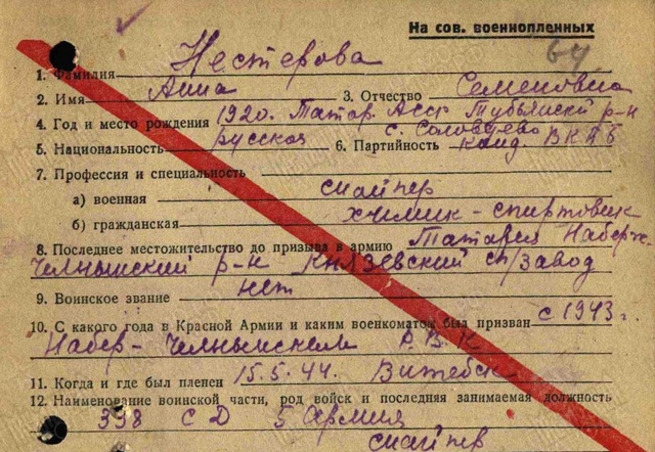 На сов. военнопленных
64
1. Фамилия Нестерова
2. Имя Анна 3. Отчество Семеновна
4. Год и место рождения 1920. Татар. Асср Тубьянский р-н
с. Соловцево
5. Национальность русская 6. Партийность канд. ВКПБ
7. Профессия и специальность
а) военная снайпер
б) гражданская химик-спиртовик
8. Последнее местожительство до призыва в армию Татария Набереж.
Челнынский р-н Князевский сп/завод
9. Воинское звание нет
10. С какого года в Красной Армии и каким военкоматом был призван с 1943 г.
Набер-Челнынским Р.В.К
11. Когда и где был пленен 15.5.44. Витебск
12. Наименование воинской части, род войск и последняя занимаемая должность
398 с Д 5 Армия
снайпер